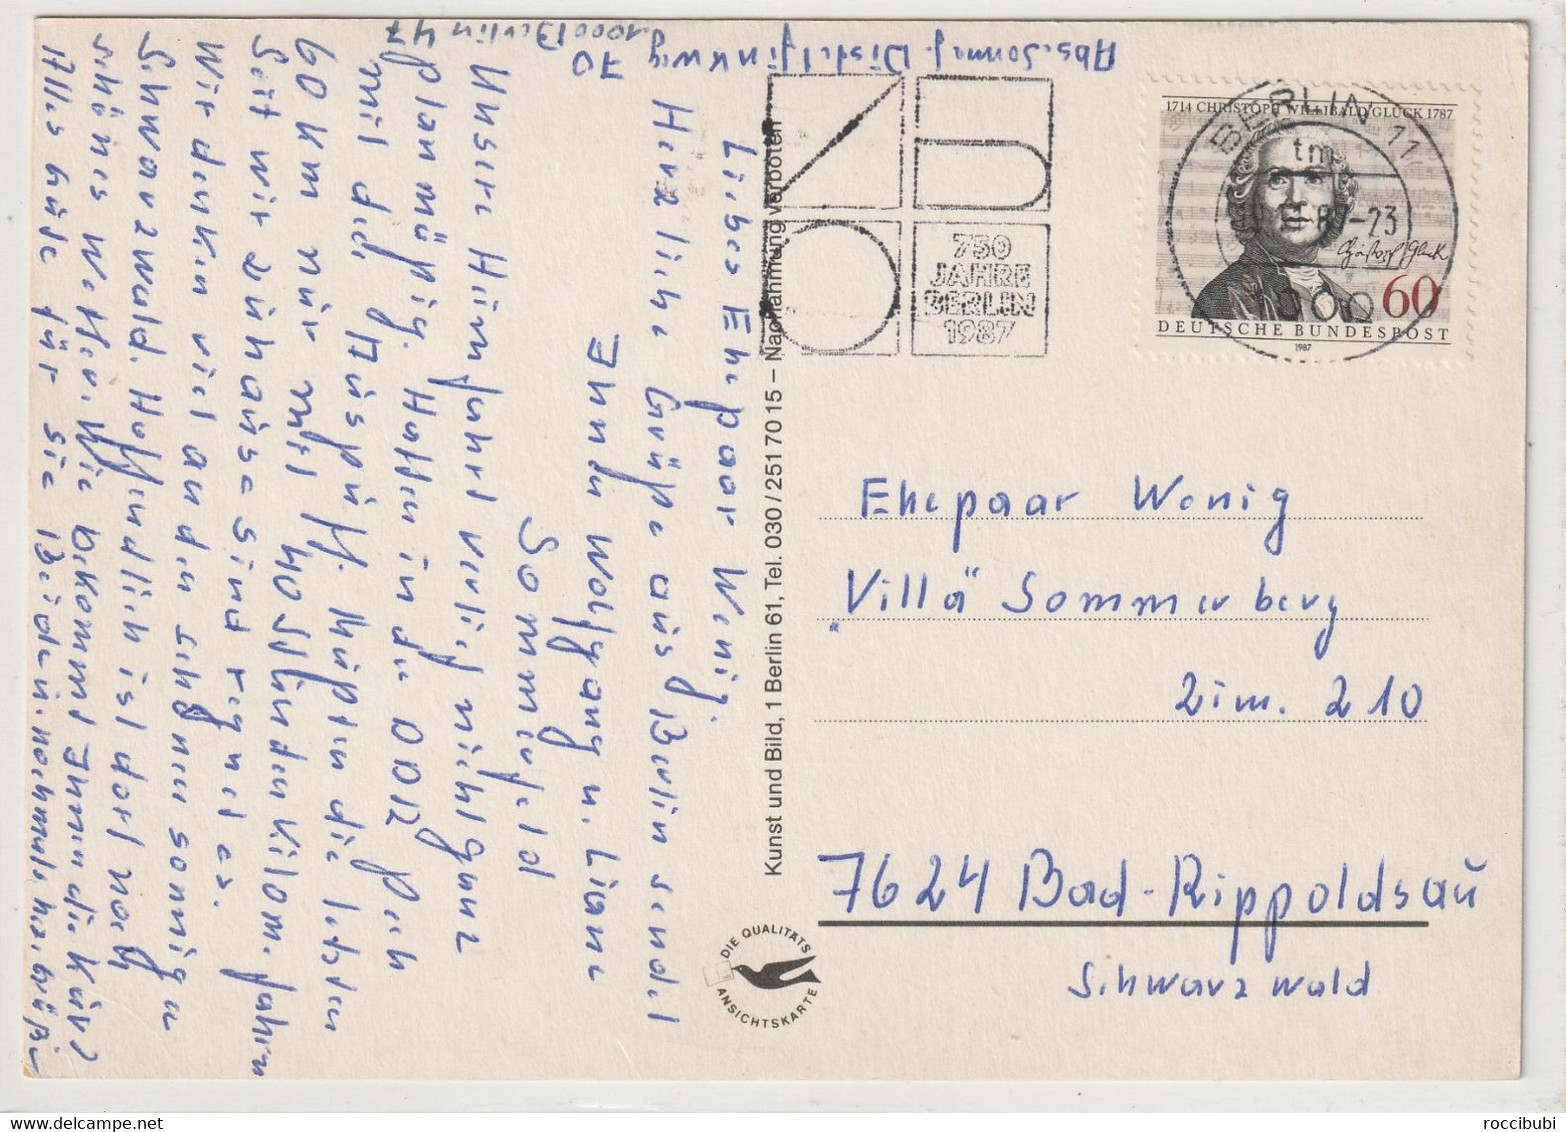 Abs. Sommerf. Distelfinkweg 70
1000 Berlin 47
Liebes Ehepaar Wenig.
Herzliche Grüße aus Berlin sendet
Ihnen Wolfgang u. Liane
Sommerfeld
Unsere Heimfahrt verlief nicht ganz
planmäßig. Hatten in der DDR Pech
mit dem Auspuff. Mußten die letzten
60 km nur mit 40 Stunden Kilom. fahren
Seit wir zuhause sind regnet es.
Wir denken viel an den schönen sonnigen
Schwarzwald. Hoffendlich ist dort noch
schönes Wetter. Wie bekommt Ihnen die Kur?
Alles gute für sie Beiden. nochmals herz. Grüße
Kunst und Bild, 1 Berlin 61, Tel. 030 / 251 70 15 – Nachahmung verboten
DIE QUALITÄTS
ANSICHTSKARTE
750
JAHRE
BERLIN
1987
1714 CHRISTOPH WILLIBALD GLUCK 1787
Christoph Gluck
60
DEUTSCHE BUNDESPOST
1987
BERLIN 11
tm
-23
1000
Ehepaar Wenig
"Villa" Sommerberg
Zim. 210
7624 Bad-Rippoldsau
Schwarzwald
roccibubi